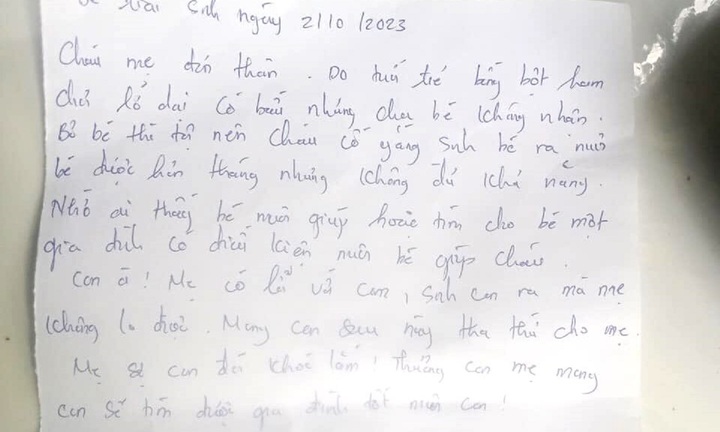 Bé trai sinh ngày 2/10/2023
Cháu mẹ đơn thân. Do tuổi trẻ bồng bột ham
chơi lỡ dại có bầu nhưng cha bé không nhận.
Bỏ bé thì tội nên cháu cố gắng sinh bé ra nuôi
bé được hơn tháng nhưng không đủ khả năng.
Nhờ ai thấy bé nuôi giúp hoặc tìm cho bé một
gia đình có điều kiện nuôi bé giúp cháu.
Con à! Mẹ có lỗi với con, sinh con ra mà mẹ
không lo được. Mong con sau này tha thứ cho mẹ.
Mẹ sợ con đói khóc lắm, thương con mẹ mong
con sẽ tìm được gia đình tốt nuôi con!